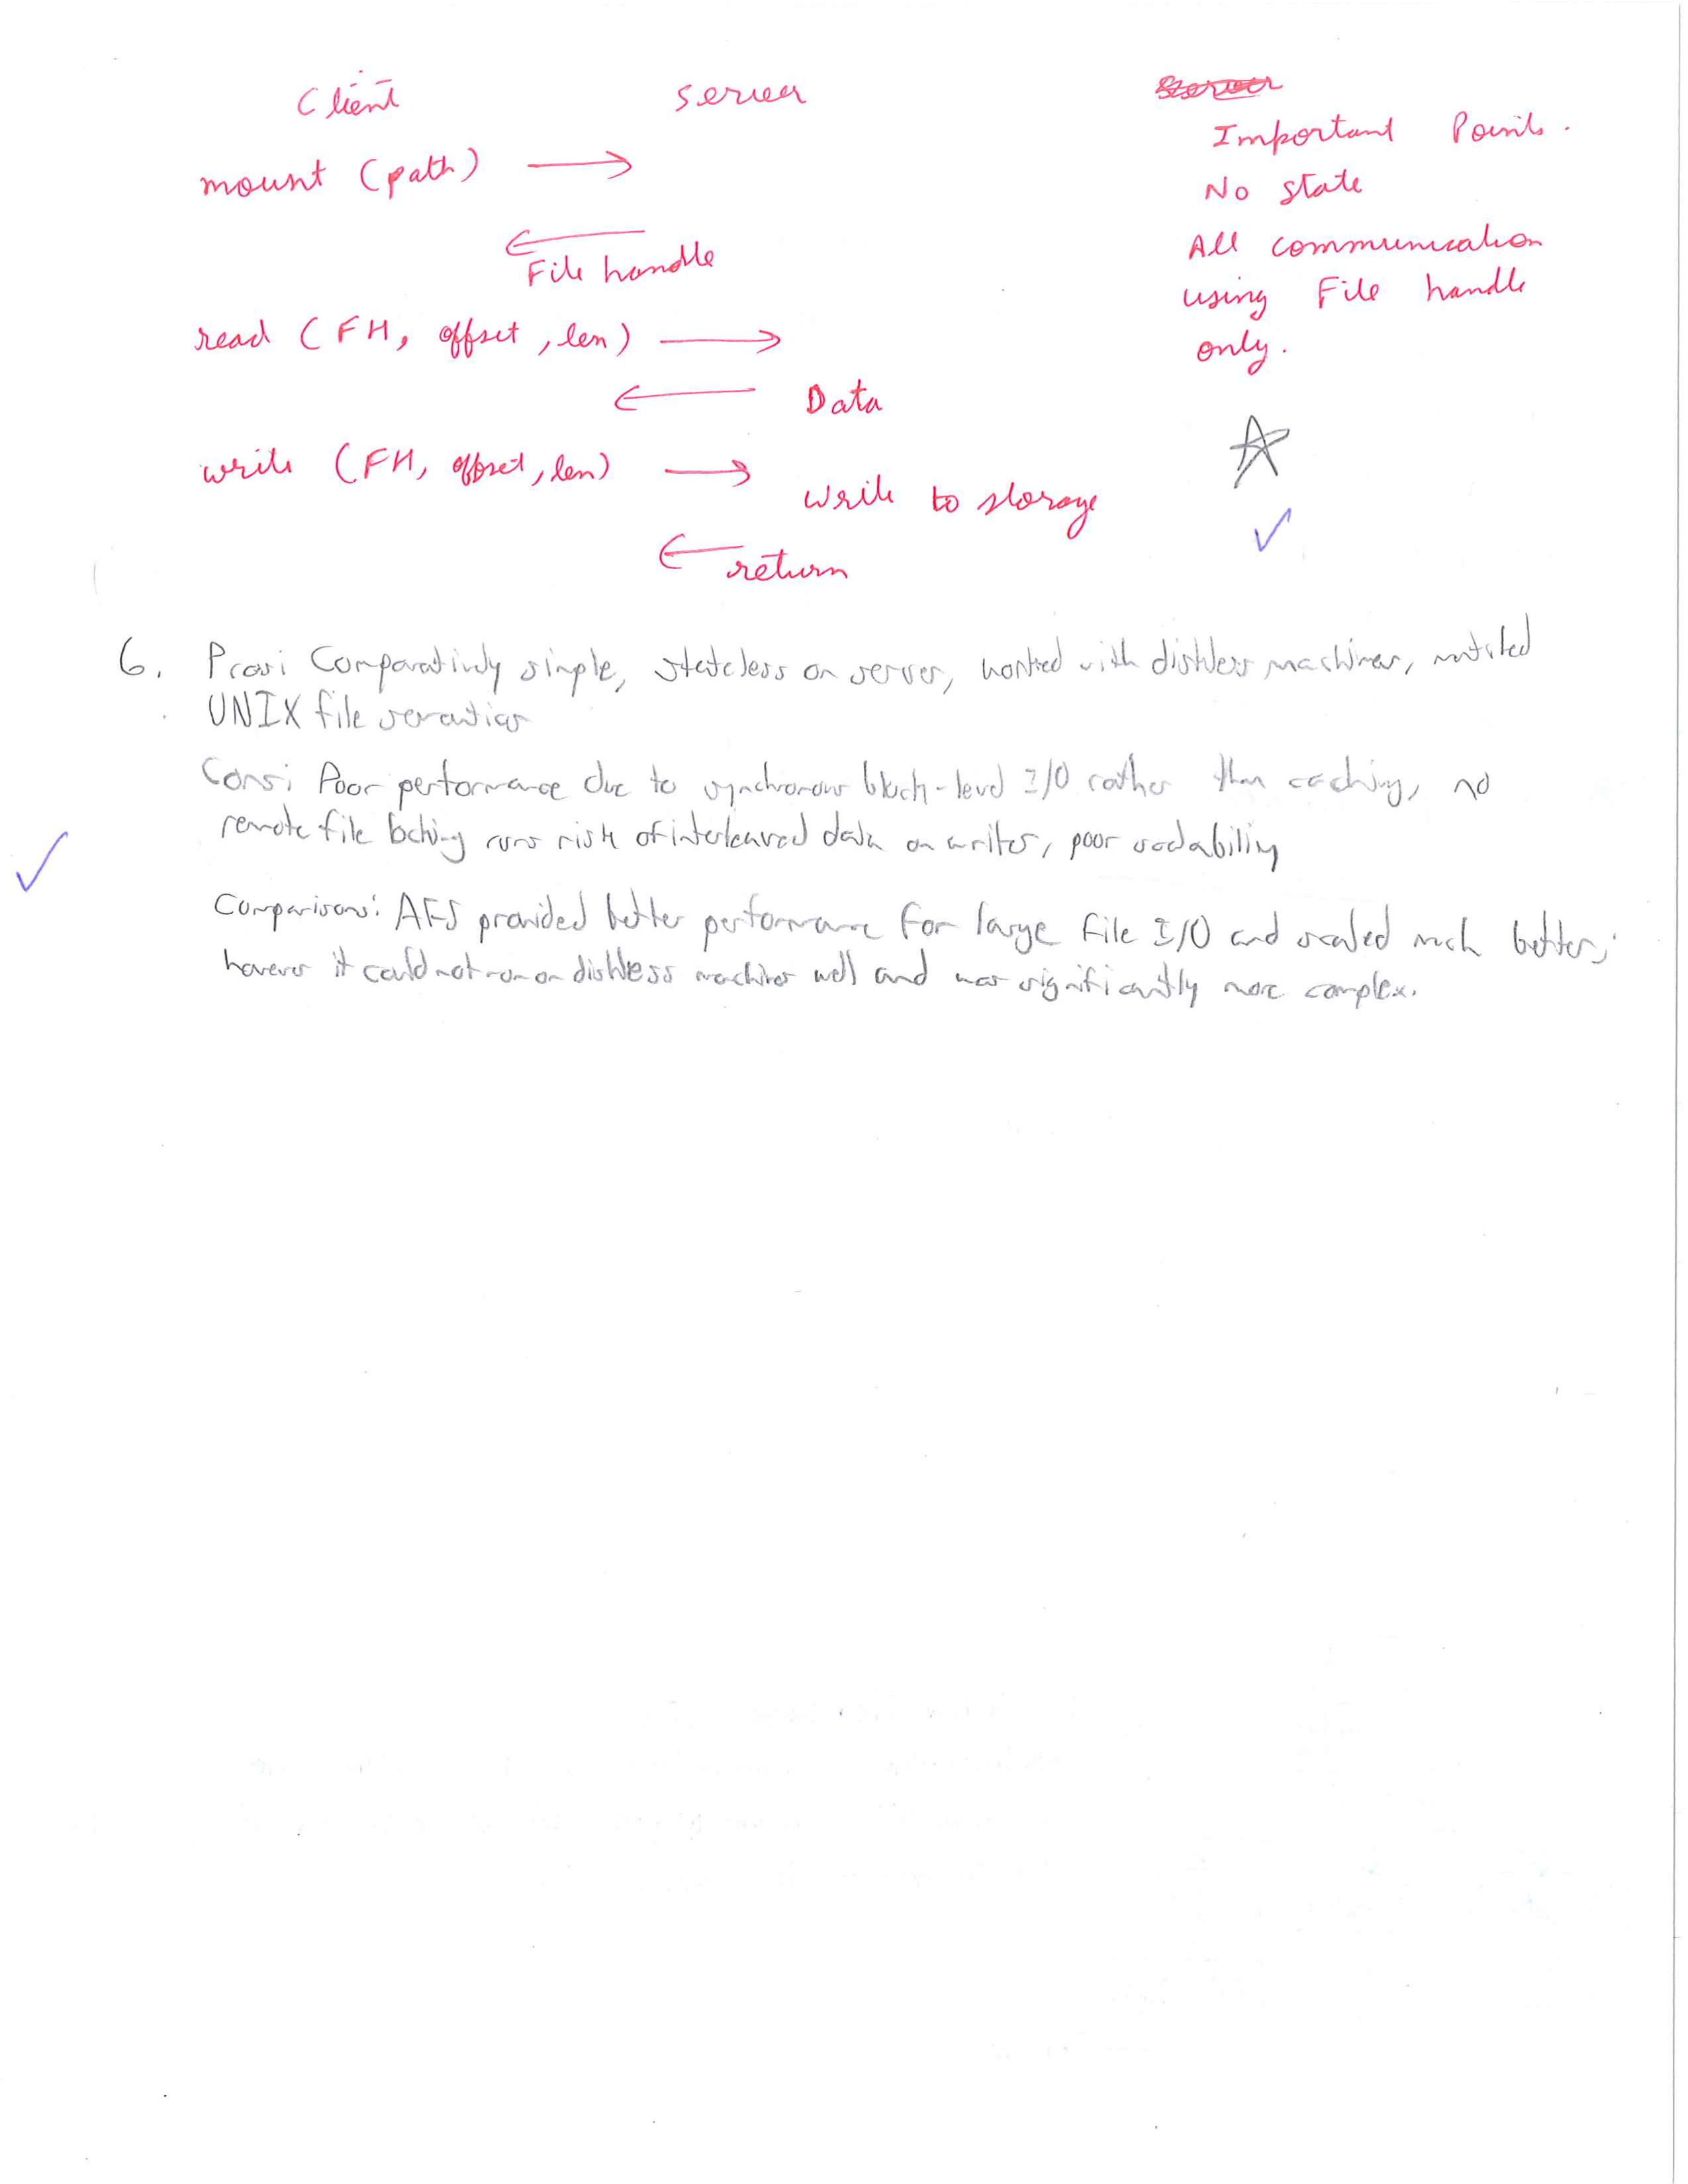 Client server
mount (path)
File handle
read (FH, offset, len)
Data
write (FH, offset, len)
write to storage
return
Important Points.
No state
All communication
using File handle
only.
6. Pros: Comparatively simple, stateless on server, worked with diskless machines, matched
UNIX file semantics
Cons: Poor performance due to synchronous block-level I/O rather than caching, no
remote file locking runs risk of interleaved data on writes, poor scalability
Comparisons: AFS provided better performance for large file I/O and scaled much better;
however it could not run on diskless machines well and was significantly more complex.